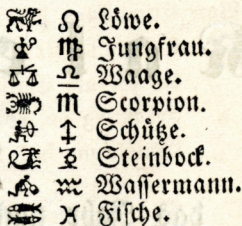 ♌ Löwe.
♍ Jungfrau.
♎ Waage.
♏ Scorpion.
♐ Schütze.
♑ Steinbock.
♒ Wassermann.
♓ Fische.